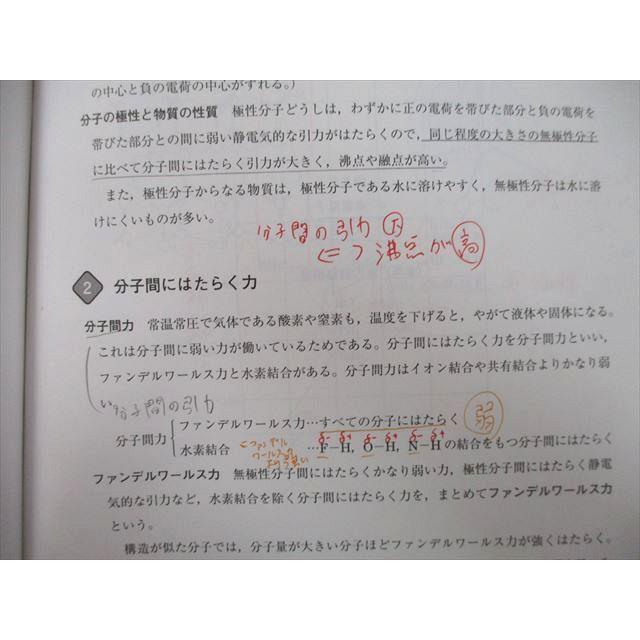 の中心と負の電荷の中心がずれる。)
分子の極性と物質の性質 極性分子どうしは，わずかに正の電荷を帯びた部分と負の電荷を
帯びた部分との間に弱い静電気的な引力がはたらくので，同じ程度の大きさの無極性分子
に比べて分子間にはたらく引力が大きく，沸点や融点が高い。
また，極性分子からなる物質は，極性分子である水に溶けやすく，無極性分子は水に溶
けにくいものが多い。
分子間の引力 大
⇔ 沸点が高
2 分子間にはたらく力
分子間力 常温常圧で気体である酸素や窒素も，温度を下げると，やがて液体や固体になる。
これは分子間に弱い力が働いているためである。分子間にはたらく力を分子間力といい，
ファンデルワールス力と水素結合がある。分子間力はイオン結合や共有結合よりかなり弱
い 分子間の引力
分子間力 ファンデルワールス力…すべての分子にはたらく 弱
δ- δ+ δ- δ+ δ- δ+
水素結合 …F−H, O−H, N−Hの結合をもつ分子間にはたらく
ファンデル
ワールス力
より強い
ファンデルワールス力 無極性分子間にはたらくかなり弱い力，極性分子間にはたらく静電
気的な引力など，水素結合を除く分子間にはたらく力を，まとめてファンデルワールス力
という。
構造が似た分子では，分子量が大きい分子ほどファンデルワールス力が強くはたらく。